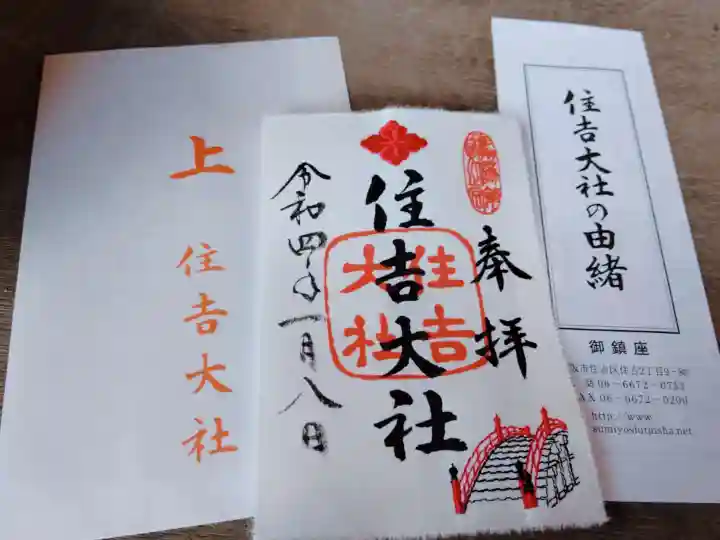 上
住吉大社
奉拝
住吉大社
住吉
大社
令和四年一月八日
住吉大社の由緒
御鎮座
市住吉区住吉2丁目9-89
06-6672-0753
AX 06-6672-0200
http://www
sumiyoshitaisha.net